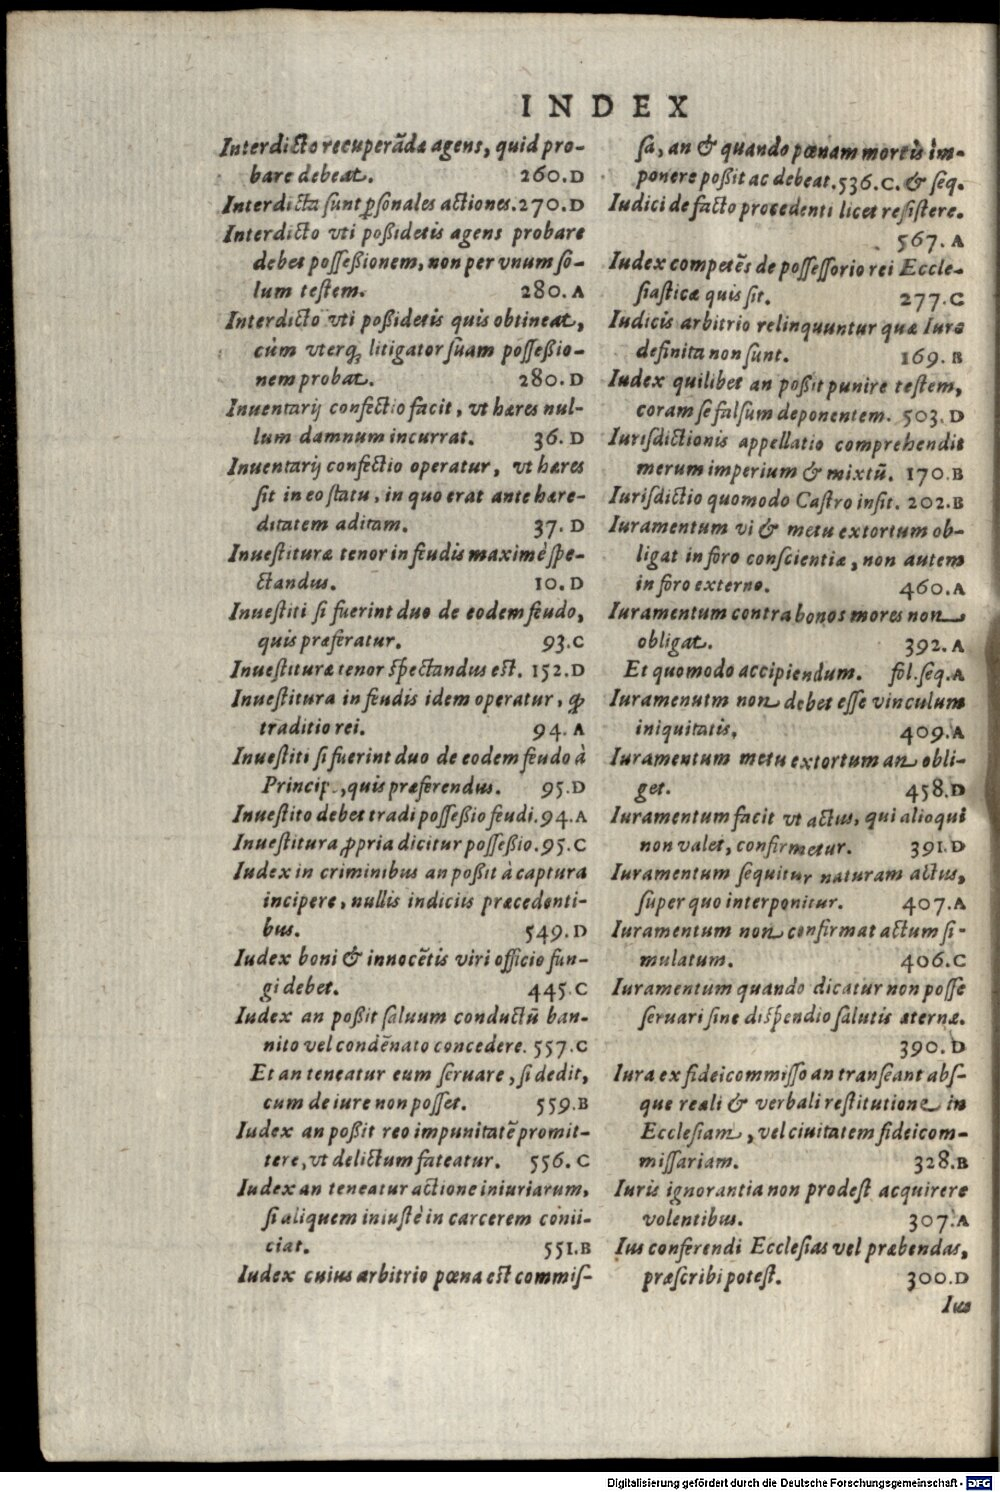 INDEX
Interdicto recuperãdæ agens, quid pro-
bare debeat. 260.D
Interdicta sunt ꝑsonales actiones. 270.D
Interdicto vti poßidetis agens probare
debet posseßionem, non per vnum so-
lum testem. 280.A
Interdicto vti poßidetis quis obtineat,
cùm vterq; litigator suam posseßio-
nem probat. 280.D
Inuentarij confectio facit, vt hæres nul-
lum damnum incurrat. 36.D
Inuentarij confectio operatur, vt hæres
sit in eo statu, in quo erat ante hære-
ditatem aditam. 37.D
Inuestituræ tenor in feudis maximè spe-
ctandus. 10.D
Inuestiti si fuerint duo de eodem feudo,
quis præferatur. 93.C
Inuestituræ tenor spectandus est. 152.D
Inuestitura in feudis idem operatur, ꝙ
traditio rei. 94.A
Inuestiti si fuerint duo de eodem feudo à
Princip., quis præferendus. 95.D
Inuestito debet tradi posseßio feudi. 94.A
Inuestitura ꝓpria dicitur posseßio. 95.C
Iudex in criminibus an poßit à captura
incipere, nullis indiciis præcedenti-
bus. 549.D
Iudex boni & innocẽtis viri officio fun-
gi debet. 445.C
Iudex an poßit saluum conductũ ban-
nito vel condẽnato concedere. 557.C
Et an teneatur eum seruare, si dedit,
cum de iure non posset. 559.B
Iudex an poßit reo impunitatẽ promit-
tere, vt delictum fateatur. 556.C
Iudex an teneatur actione iniuriarum,
si aliquem iniustè in carcerem conii-
ciat. 551.B
Iudex cuius arbitrio pœna est commis-
sa, an & quando pœnam mortis im-
ponere poßit ac debeat. 536.C. & seq.
Iudici de facto procedenti licet resistere.
567.A
Iudex competẽs de possessorio rei Eccle-
siasticæ quis sit. 277.C
Iudicis arbitrio relinquuntur quæ Iure
definita non sunt. 169.B
Iudex quilibet an poßit punire testem,
coram se falsum deponentem. 503.D
Iurisdictionis appellatio comprehendit
merum imperium & mixtũ. 170.B
Iurisdictio quomodo Castro insit. 202.B
Iuramentum vi & metu extortum ob-
ligat in foro conscientiæ, non autem
in foro externo. 460.A
Iuramentum contra bonos mores non
obligat. 392.A
Et quomodo accipiendum. fol.seq.A
Iuramenutm non debet esse vinculum
iniquitatis. 409.A
Iuramentum metu extortum an obli-
get. 458.D
Iuramentum facit vt actus, qui alioqui
non valet, confirmetur. 391.D
Iuramentum sequitur naturam actus,
super quo interponitur. 407.A
Iuramentum non confirmat actum si-
mulatum. 406.C
Iuramentum quando dicatur non posse
seruari sine dispendio salutis æternæ.
390.D
Iura ex fideicommisso an transeant abs-
que reali & verbali restitutione in
Ecclesiam, vel ciuitatem fideicom-
missariam. 328.B
Iuris ignorantia non prodest acquirere
volentibus. 307.A
Ius conferendi Ecclesias vel præbendas,
præscribi potest. 300.D
Ius
Digitalisierung gefördert durch die Deutsche Forschungsgemeinschaft - DFG